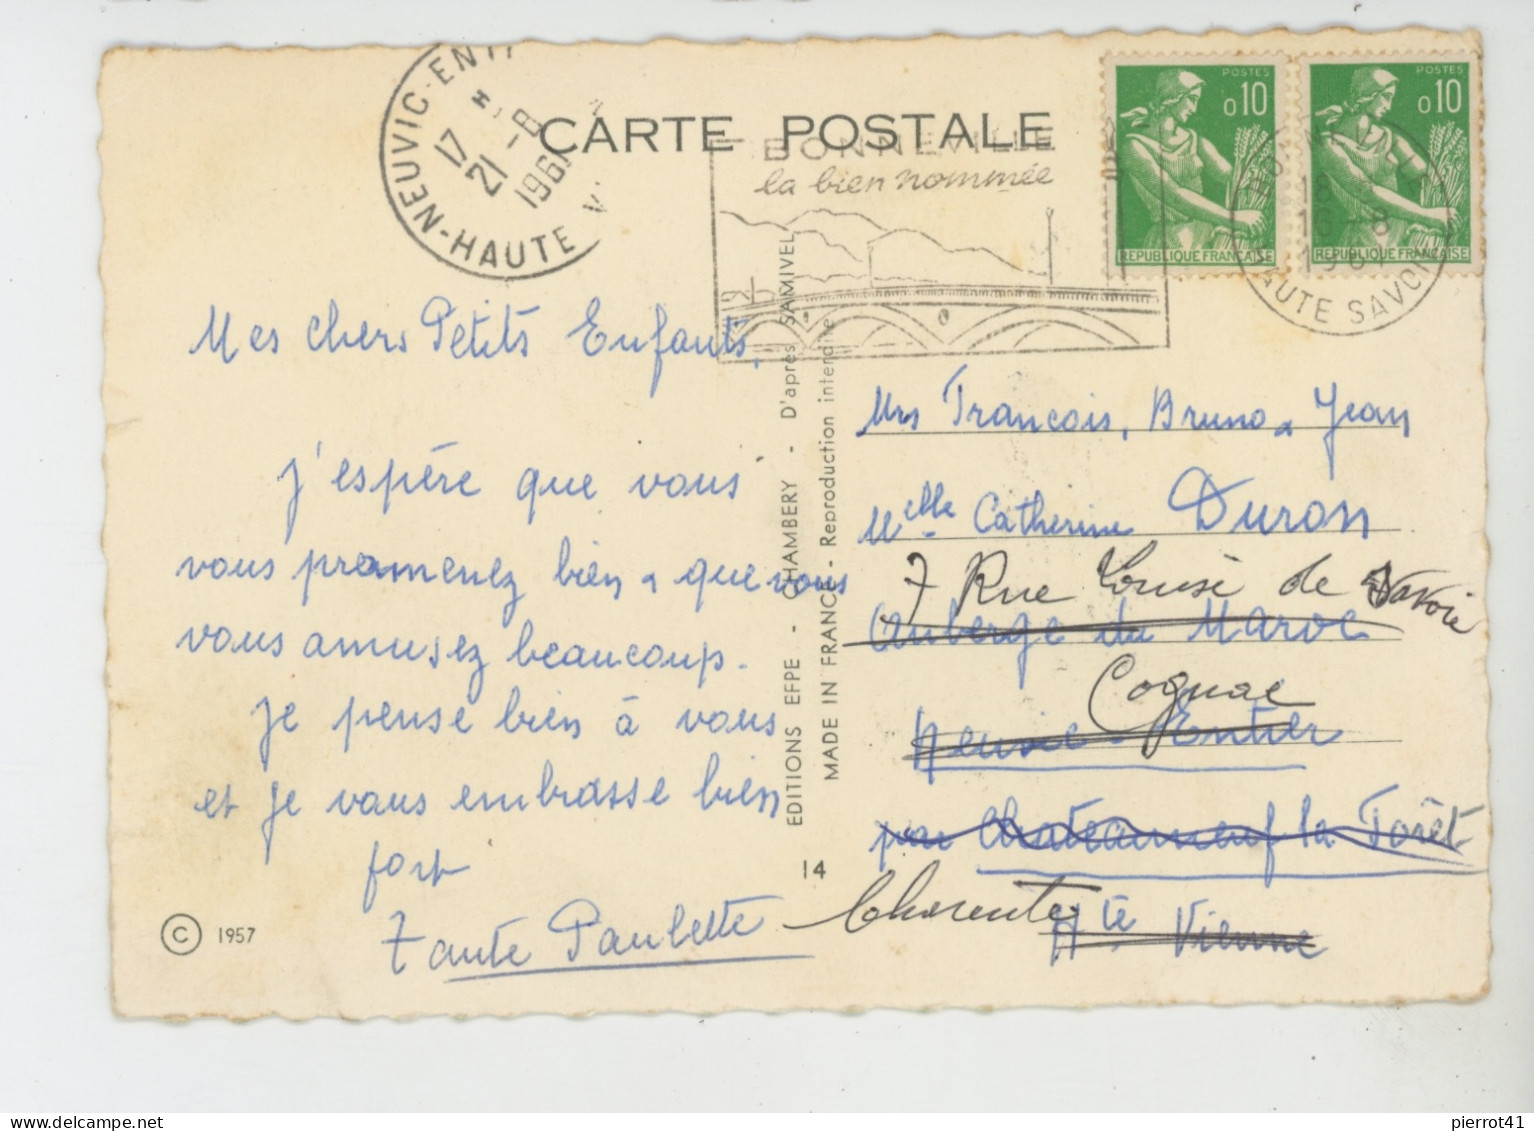 NEUVIC-ENTI
17 H
21 -8
1961
NEUVIC-HAUTE V
CARTE POSTALE
BONNEVILLE
la bien nommée
POSTES
0,10
REPUBLIQUE FRANÇAISE
POSTES
0,10
REPUBLIQUE FRANÇAISE
BONNEVILLE
18
16-8
HAUTE SAVOIE
Mes chers Petits Enfants,
J'espère que vous
vous promenez bien & que vous
vous amusez beaucoup.
Je pense bien à vous
et je vous embrasse bien
fort
Tante Paulette
© 1957
EDITIONS EFPE - CHAMBERY - D'après SAMIVEL
MADE IN FRANCE - Reproduction interdite
14
Mrs Francois, Bruno & Jean
Melle Catherine Duron
7 Rue Louise de Savoie
Auberge du Maroc
Cognac
Neuvic-Entier
par Chateauneuf la Forêt
Charente
Hte Vienne
pierrot41